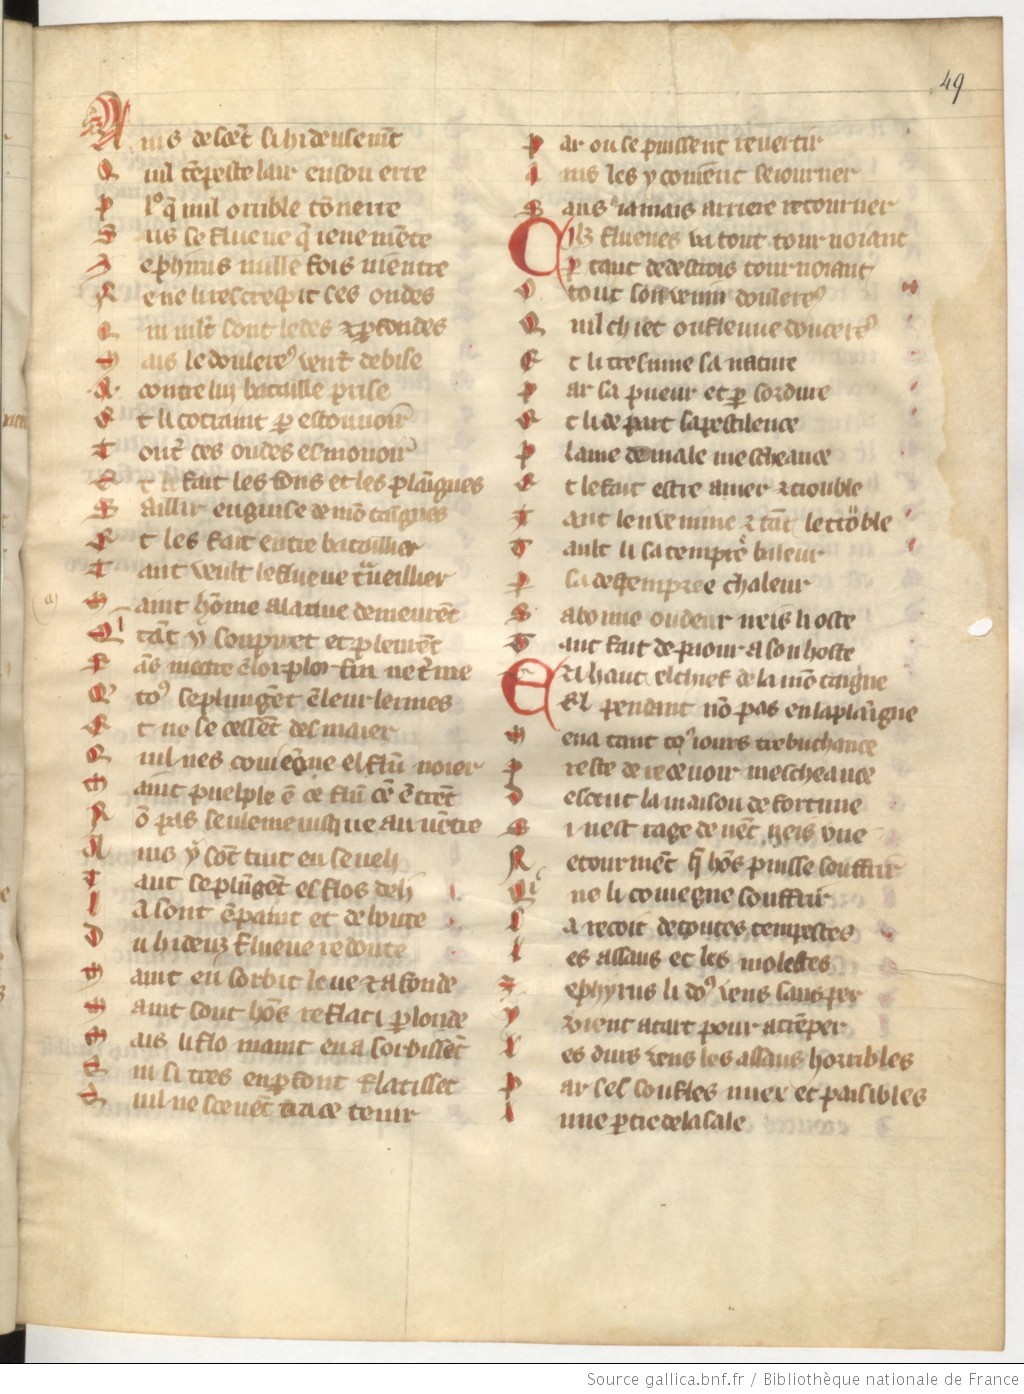 49
A ins descēt si hideusemt̄
Q uil tēpeste lair en son erre
P lꝰ q̄ nul orrible tōnerre
S us se flueue q̄ ie ne mēte
Z ephirus nulle fois nientre
N e ne li recrespit ses ondes
Q ui mlt̄ sont ledes ⁊ ꝑfondes
M ais le doulereꝰ vent de bise
A contre luy bataille prise
E t li cōtraint ꝑ estouuoir
T out̄ ces ondes esmouuoir
E t li fait les fons et les plaīgnes
S aillir en guise de mōtaignes
E t les fait entre bataillier
T ant veult le flueue t̄ueillier
M aint hōme a la riue demeurēt
Q i tāt y souspirēt et pleurēt
S ās mettre ē lor plor fin ne t̄me
Q̄ toꝰ se plungēt ē leur lermes
E t ne se cessent desmaier
Q uil nes couiēgne el flū noier
M aint pueple ē ce flū cē ētrēt
N ō pas seulemē iusque au uētre
A ins y sōt tuit enseueli
T ant se plūgēt es flos de li
L a sont ēpaint et deboute
D u hideuz flueue redoute
M aint en sorbit leue ⁊ afonde
M aint sont hōs reflati ꝑ londe
M ais li flo maint en asorbissēt
Q ui si tres en ꝑfont flatissēt
Q uil ne sceuēt trace tenir
P ar ou se puissent reuertir
A ins les y couiēnt seiourner
S ans iamais arriere retourner
Cilz flueues va tout tournoiant
Ꝑ tant de destrois tournoiant
O tout son venin doulereꝰ
Q uil chiet ou flueue doucereꝰ
E t li tresmue sa nature
P ar sa pueur et ꝑ sordure
E t li depart sa pestilence
P laine de male mescheance
E t le fait estre amer ⁊ trouble
T ant lenuenime ⁊ tāt le trōble
T ault li satempree valeur
P sa destempree chaleur
S a bonne oudeur neis li oste
T ant fait de puour a son hoste
En hault el chief de la mōtaigne
El pendant nō pas en la plaīgne
M ena tant toꝰiours trebuchance
P reste de receuoir mescheance
D escent la maison de fortune
S i nest rage de uēt neis vne
N e tourmēt q̄ hōs puisse souffrir
Q i ne li couiegne souffrir
L a recoit de toutes tempestes
L es assaus et les molestes
Z ephyrus li doꝰ vens sans per
Y vient a tart pour atēper
L es durs vens les assaus horribles
P ar ses soufles ... et paisibles
L une ꝑtie de la sale
(a)
Source gallica.bnf.fr / Bibliothèque nationale de France